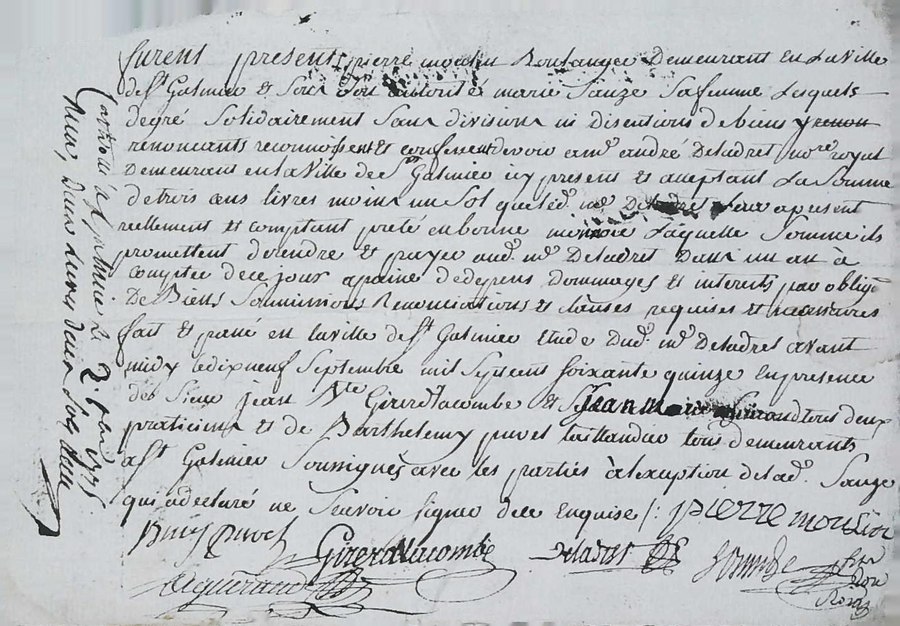 furent present pierre moulin Boulanger Demeurant En La Ville
de St Galmier Et Sous Son autorité marie Sauze Sa femme Lesquels
degré Solidairement Sans division ni disentions de biens y renon
renoncants reconnoissent Et confessent devoir a me andré Deladret nore royal
Demeurant en la Ville de St Galmier icy present Et aceptant La Somme
de trois cens livres moins un Sol que led. me Deladret a present
reellement Et comptant preté en bonne monoie Laquelle Somme ils
promettent de rendre Et payer aud. me Deladret Dans un an a
compter de ce jour a paine de depens Dommages Et interets par oblign
De Biens Soumissions Renonciations Et clauses requises Et necessaires
fait Et passé en la ville de St Galmier Etude Dud. me Deladret avant
midy le dix neuf Septembre mil Sept cent soixante quinze en presence
des Sieur jean Bte Girerd Lacombe Et Sr jean marie tous deux
praticiens Et de Barthelemy puvel taillandier tous demeurants
a St Galmier Soussignés avec les parties à l'exeption de lad. Sauze
qui a declaré ne Scavoir signer de ce Enquise /: pierre moulin
Girerd Lacombe Deladret
nore
Royal
Controlé à St Galmier le 2. 8bre 1775
Reçu, Deux Livres deux Sols